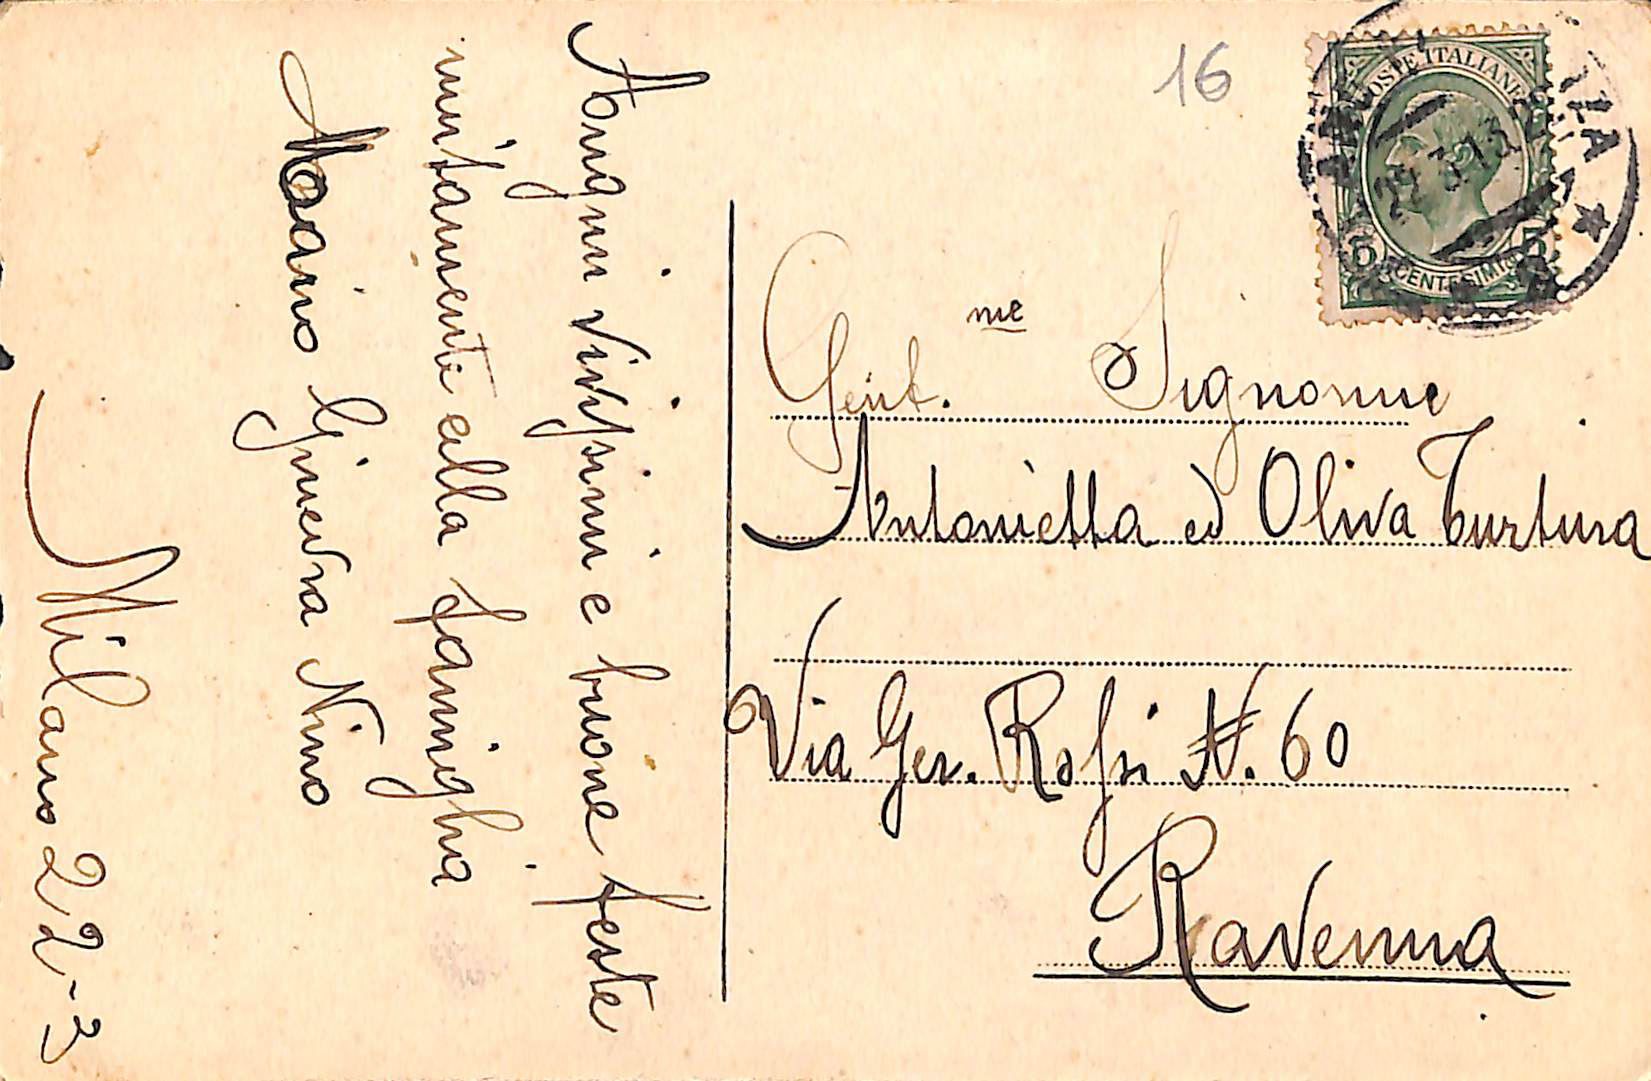 Auguri vivissimi e buone feste
unitamente alla famiglia
Mario Ginevra Nino
Milano 22-3
16
POSTE ITALIANE
5 CENTESIMI 5
22 3 13
Gent.me Signorine
Antonietta ed Oliva Turtura
Via Ger. Rossi N. 60
Ravenna